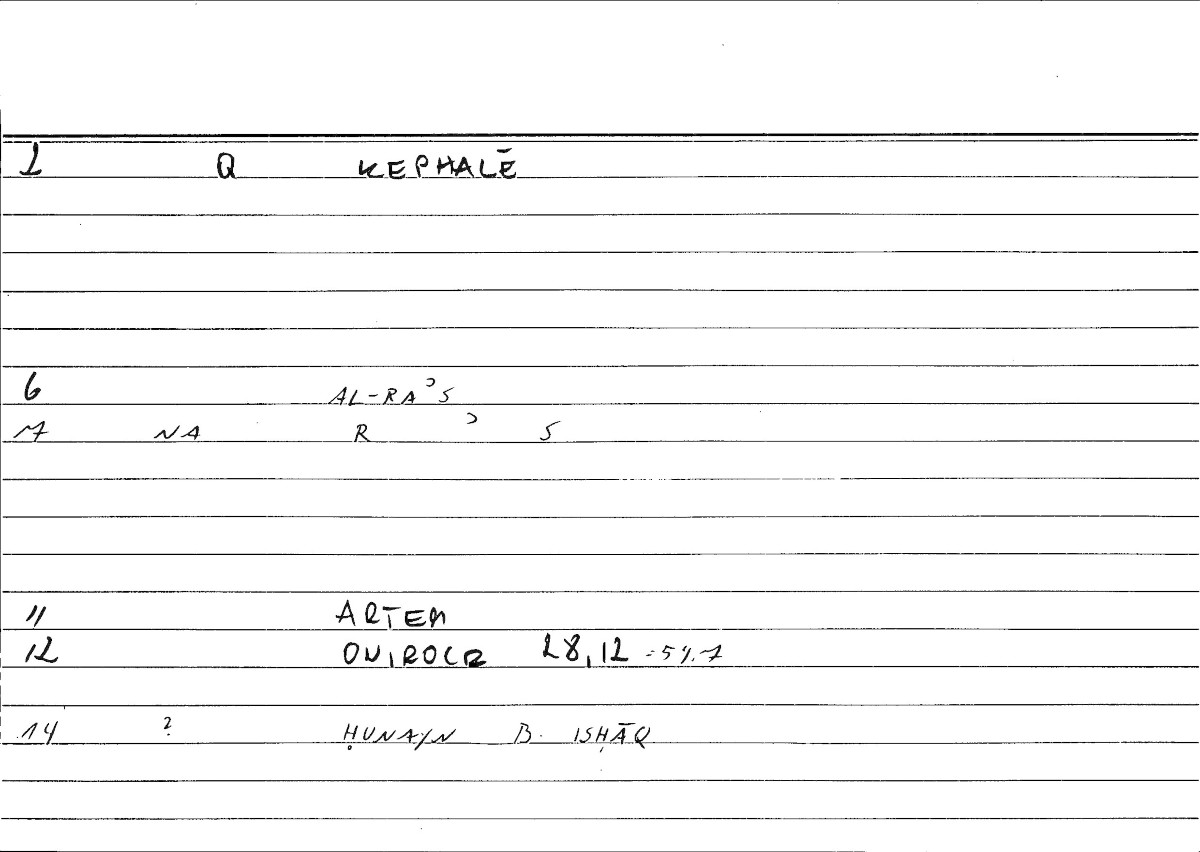 1 Q KEPHALĒ
6 AL-RAʾS
7 NA R ʾ S
11 ARTEM
12 ONIROCR 28,12 = 54.7
14 ? ḤUNAYN B. ISḤĀQ